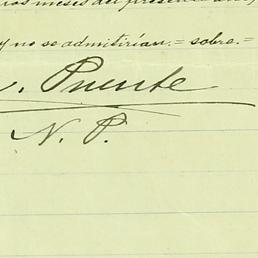 meses del presente año,
y no se admitirían.= sobre.=
. Puente
N. P.